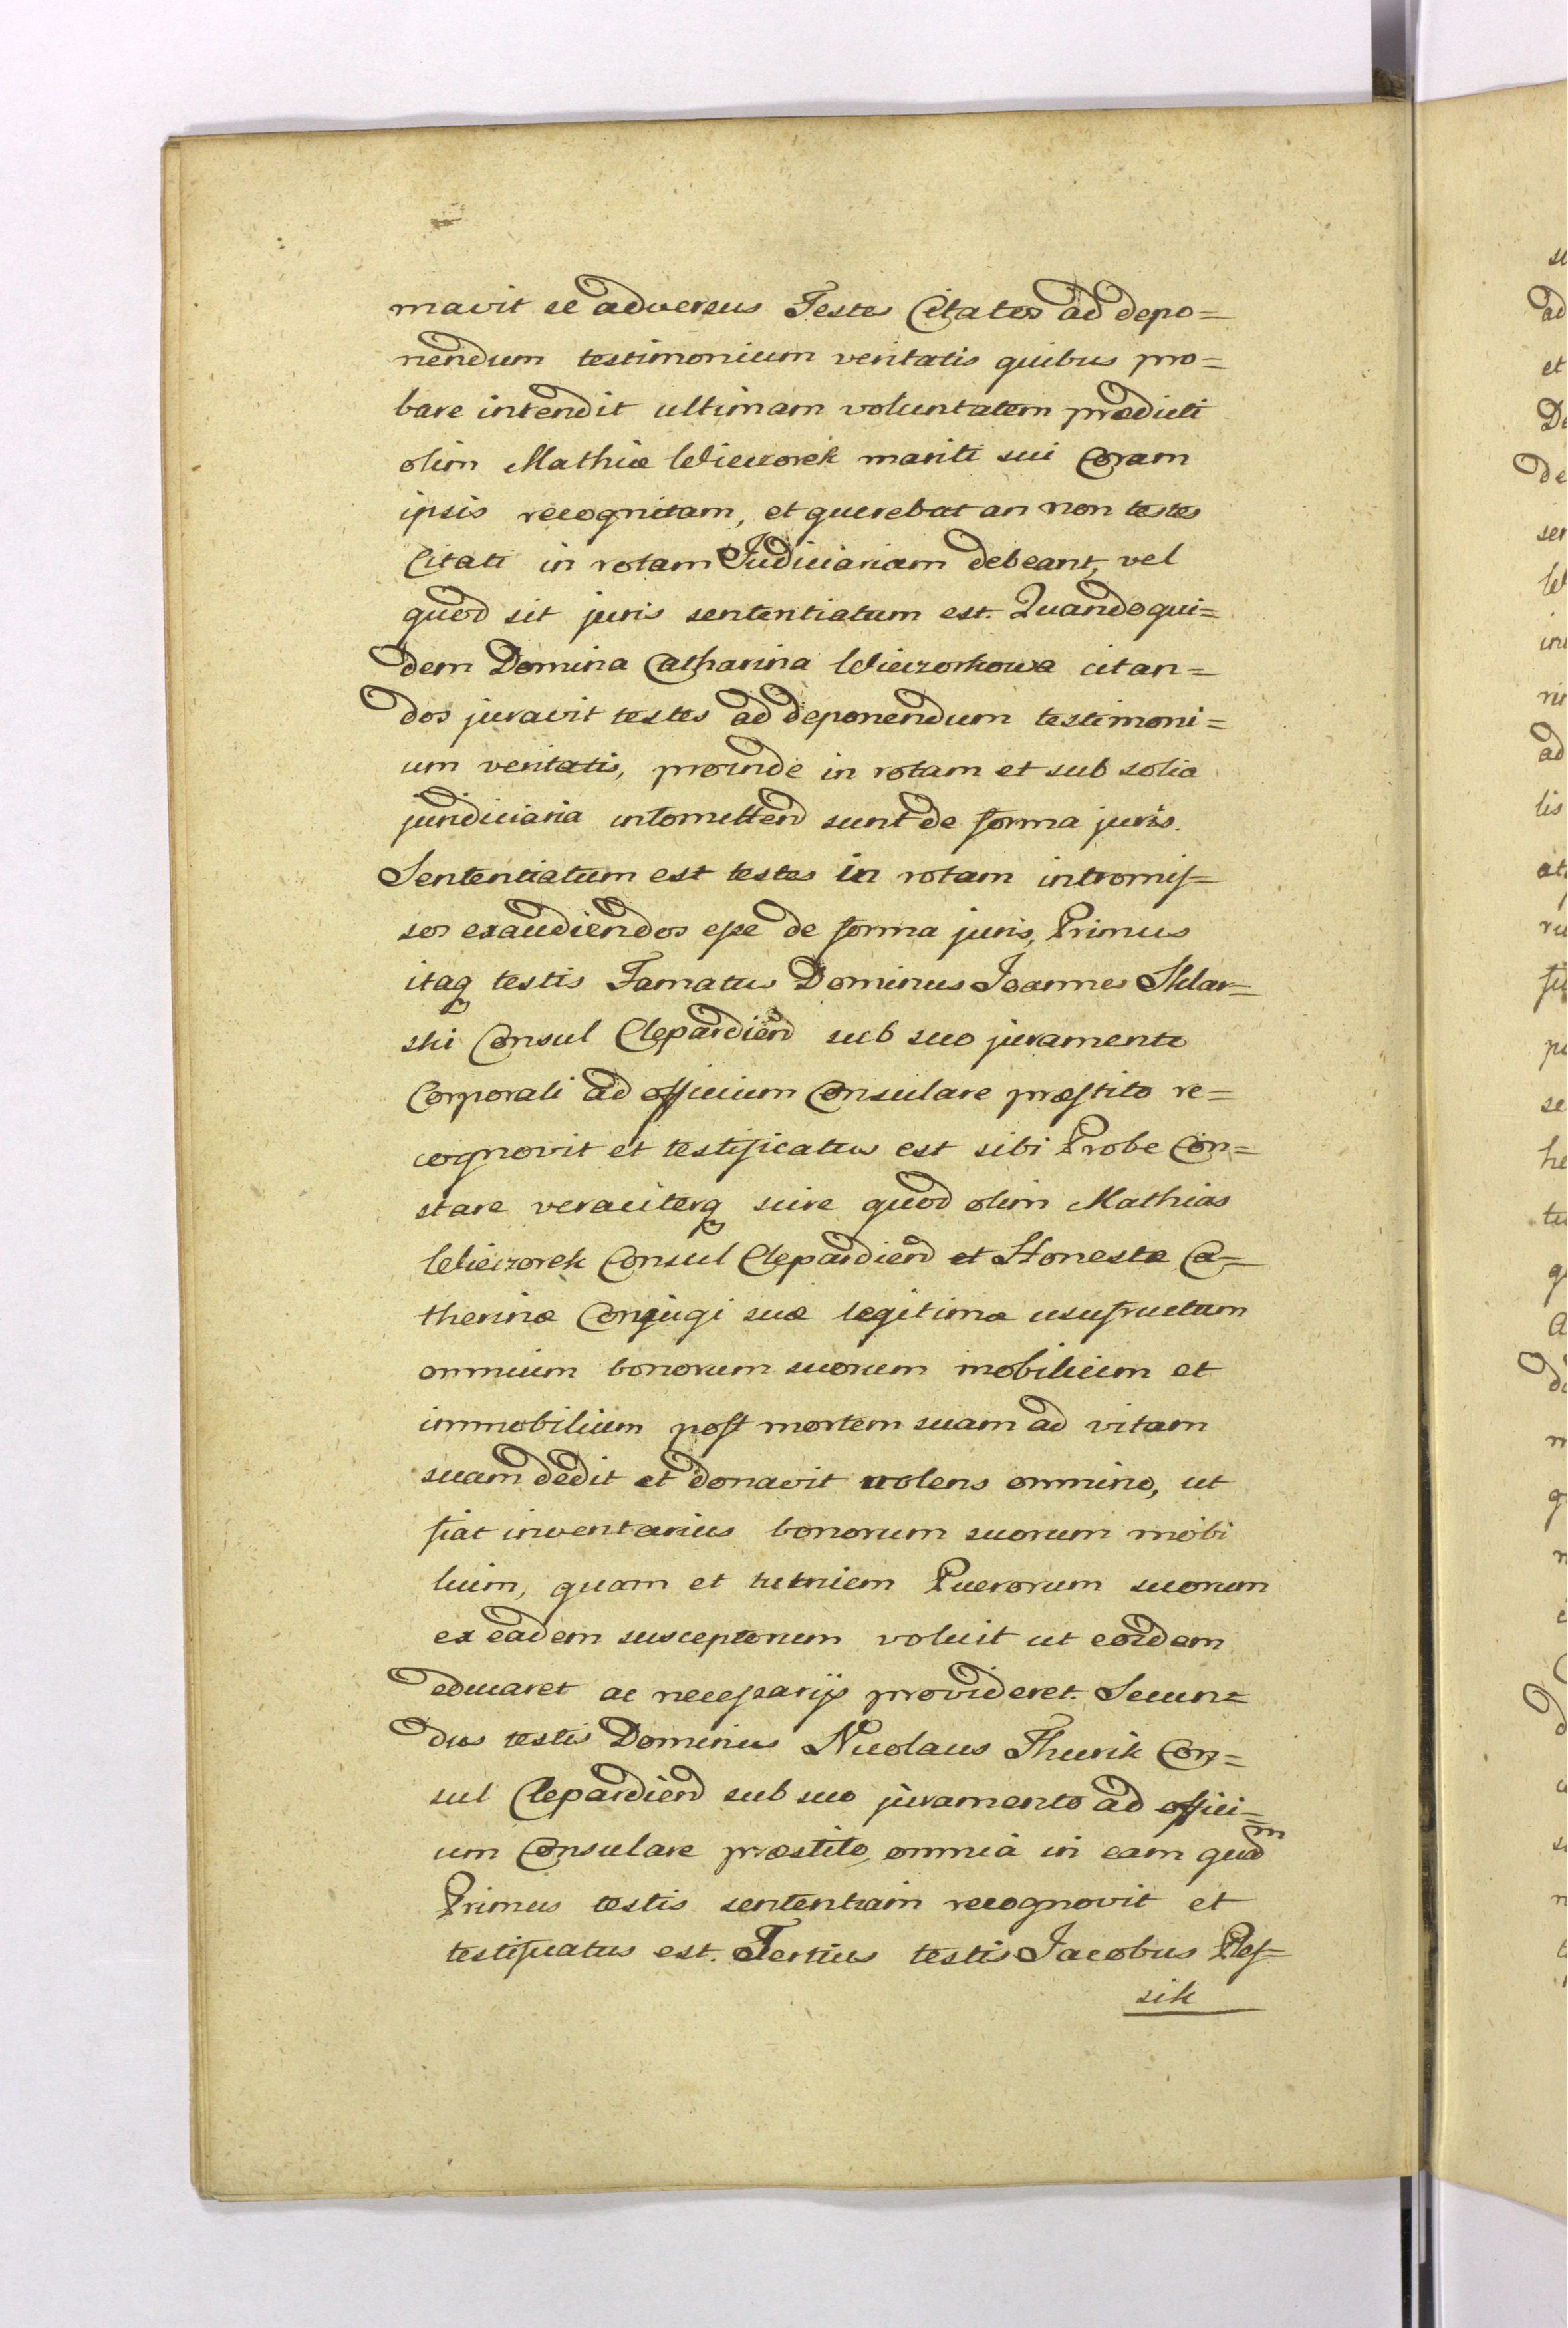 mavit se adversus Testes Citatos ad depo=
nendum testimonium veritatis quibus pro=
bare intendit ultimam voluntatem prædicti
olim Mathiæ Wieczorek mariti sui Coram
ipsis recognitam, et querebat an non testes
Citati in rotam Judiciariam debeant, vel
quod sit juris sententiatum est. Quandoqui=
dem Domina Catharina Wieczorkowa citan=
dos juravit testes ad deponendum testimoni=
um veritatis, proinde in rotam et sub solia
juridiciaria intomittend sunt de forma juris.
Sententiatum est testes in rotam intromis=
sos exaudiendos esse de forma juris, Primus
itaq testis Famatus Dominus Joannes Sklar=
ski Consul Clepardien̄ sub suo juramento
Corporali ad officium Consulare præstito re=
cognovit et testificatus est sibi Probe Con=
stare veraciterq scire quod olim Mathias
Wieczorek Consul Clepardien̄ et Honestæ Ca=
therinæ Conjugi suæ legitimæ usufructum
omnium bonorum suorum mobilium et
immobilium post mortem suam ad vitam
suam dedit et donavit volens omnino, ut
fiat inventarius bonorum suorum mobi
lium, quam et Puerorum suorum
ex eadem susceptorum voluit ut eosdem
educaret ac necessarijs provideret. Secun=
dus testis Dominus Nicolaus Thurik Con=
sul Clepardien̄ sub suo juramento ad offici=
um Consulare præstito, omnia in eam quam
Primus testis sententiam recognovit et
testificatus est. Tertius testis Jacobus Ples=
sik